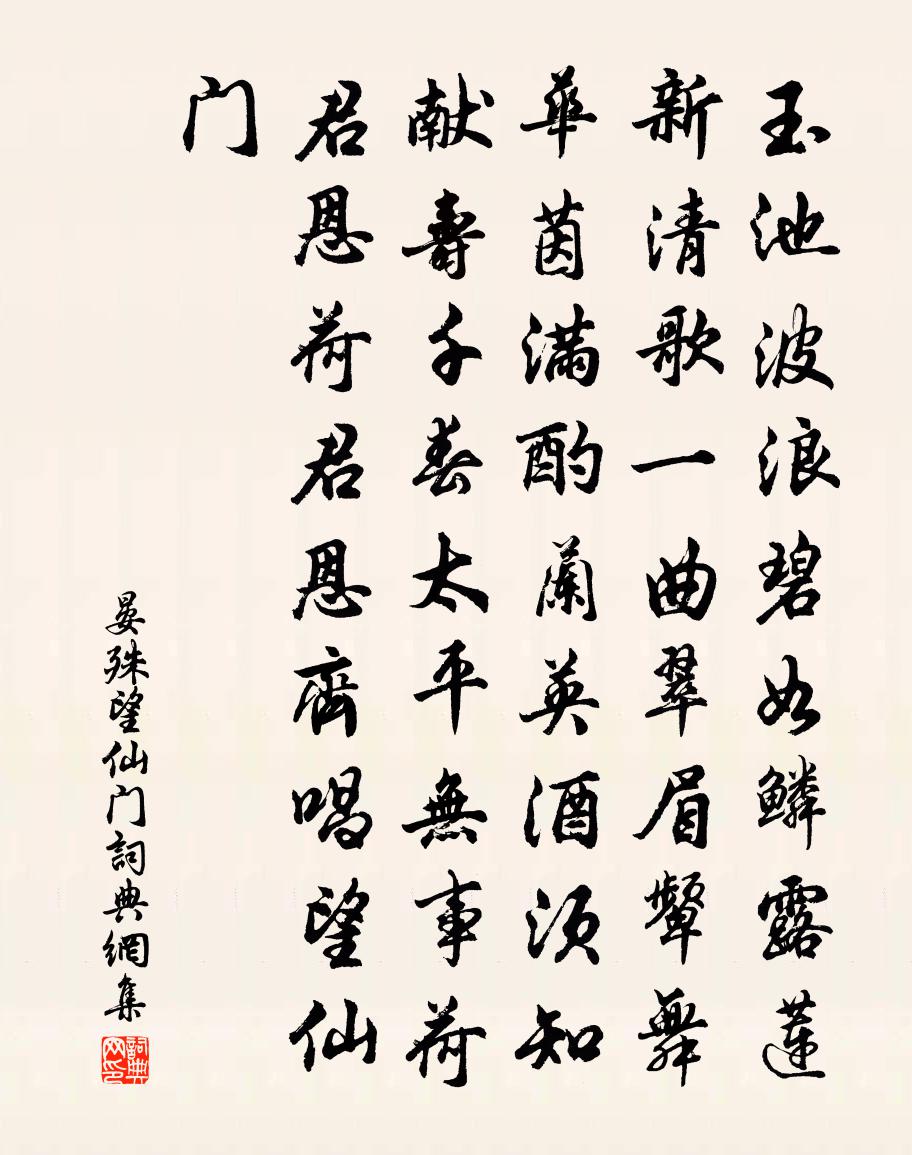 玉池波浪碧如鳞露莲
新清歌一曲翠眉颦舞
華茵满酌蘭英酒须知
献壽千春太平無事荷
君恩荷君恩齊唱望仙
门
晏殊望仙门詞典網集
詞典网印